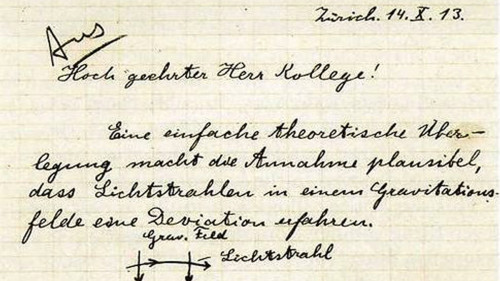 Zürich. 14. X. 13.
Hoch geehrter Herr Kollege!
Eine einfache theoretische Über-
legung macht die Annahme plausibel,
dass Lichtstrahlen in einem Gravitations-
felde eine Deviation erfahren.
Grav. Feld
Lichtstrahl